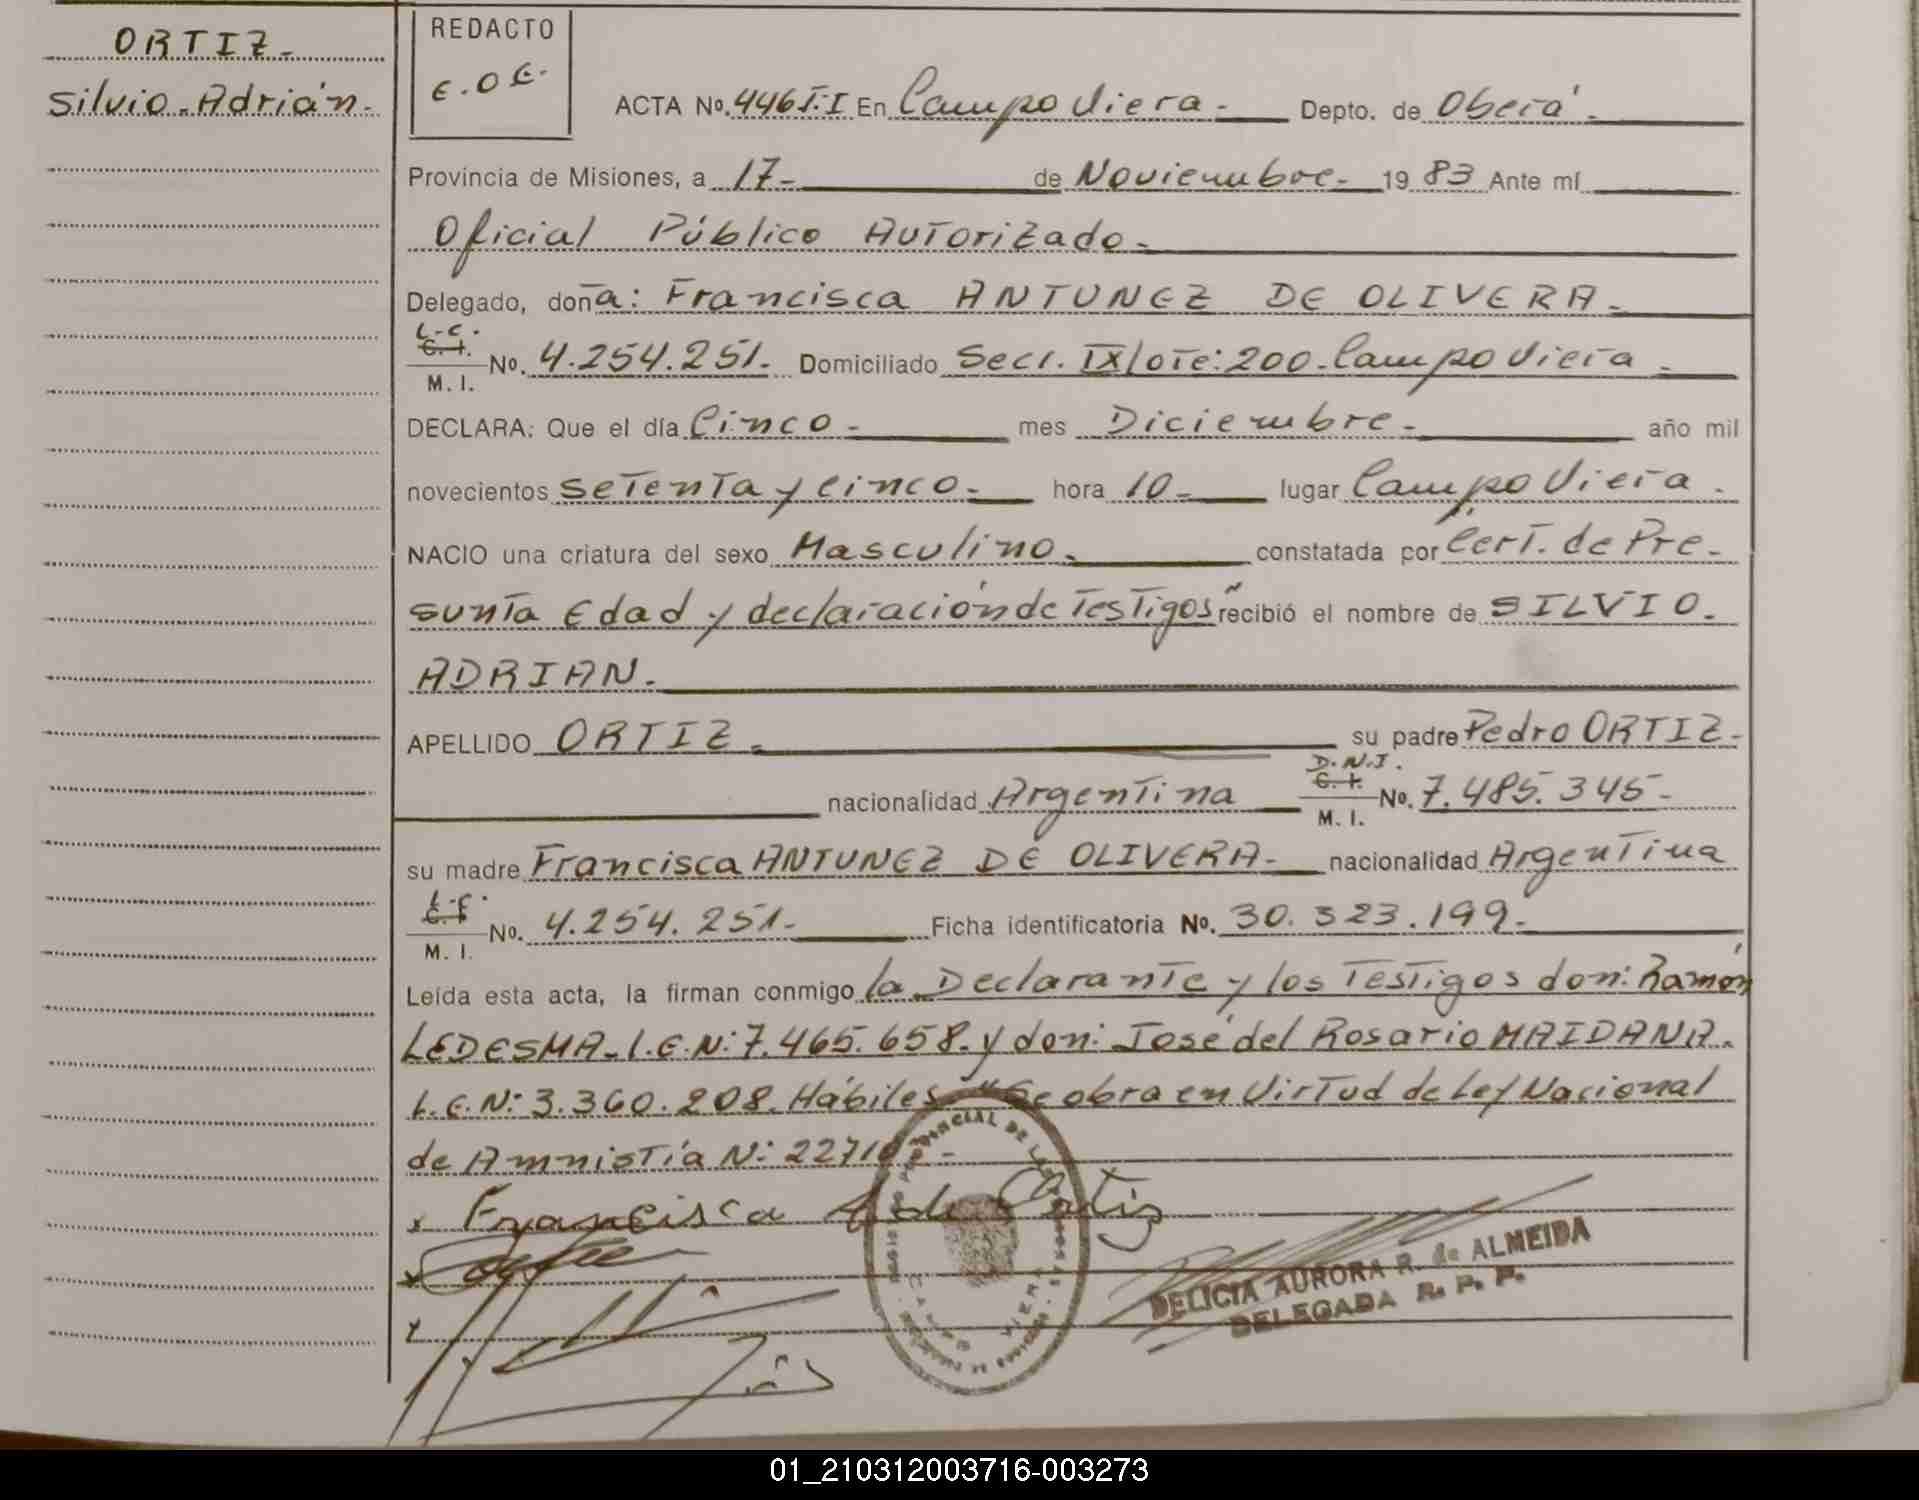 ORTIZ-
Silvio-Adrián-
REDACTO
E.O.E.
ACTA No. 446 T.I En Campo Viera- Depto. de Oberá-
Provincia de Misiones, a 17- de Noviembre- 19 83 Ante mí
Oficial Público Autorizado-
Delegado, doña: Francisca ANTUNEZ DE OLIVERA-
L.C.
C. I.
M. I. No. 4.254.251- Domiciliado Secc. IX lote: 200- Campo Viera-
DECLARA: Que el día Cinco- mes Diciembre- año mil
novecientos setenta y cinco- hora 10- lugar Campo Viera-
NACIO una criatura del sexo Masculino- constatada por Cert. de Pre-
sunta Edad y declaración de Testigos" recibió el nombre de SILVIO-
ADRIAN-
APELLIDO ORTIZ- su padre Pedro ORTIZ-
nacionalidad Argentina D.N.I. C. I. M. I. No. 7.485.345-
su madre Francisca ANTUNEZ DE OLIVERA- nacionalidad Argentina
L.C.
C. I.
M. I. No. 4.254.251- Ficha identificatoria No. 30.323.199-
Leída esta acta, la firman conmigo la Declarante y los Testigos don: Ramón
LEDESMA- L.E.N: 7.465.658- y don: José del Rosario MAIDANA-
L.E.N: 3.360.208. Hábiles- "Se obra en Virtud de Ley Nacional
de Amnistía N: 22710"-
x Francisca A de Ortiz
x
x
CAMPO VIERA
DELICIA AURORA R. de ALMEIDA
DELEGADA R. P. P.
01_210312003716-003273